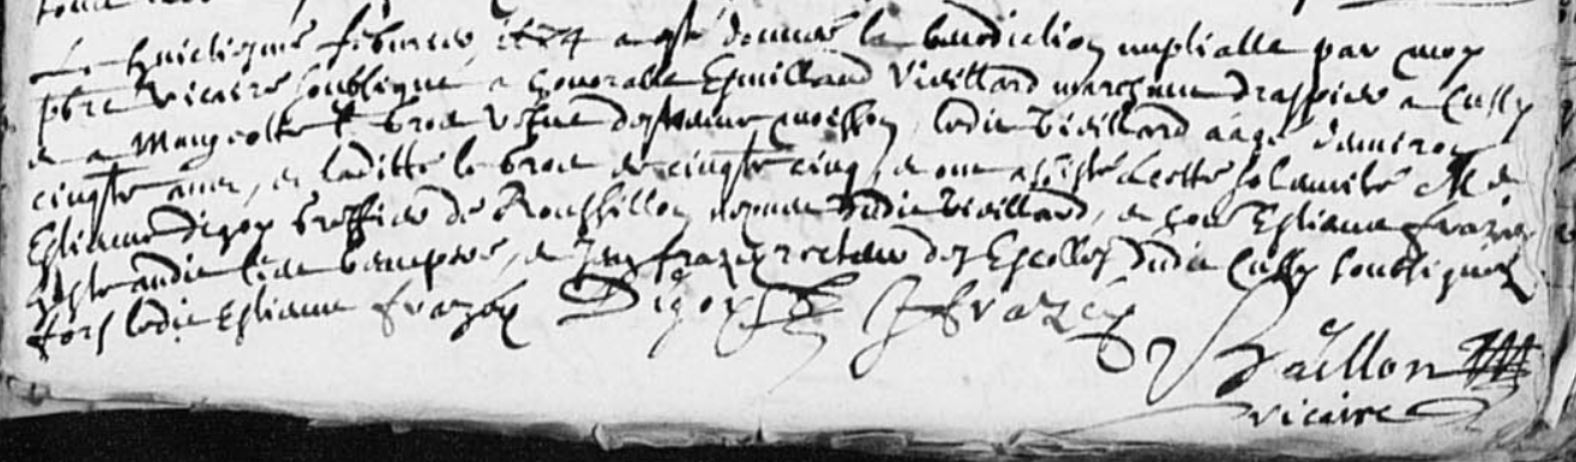 Le huictiesme febvrier 1674 a esté donnée la benediction nuptialle par moy
pbre vicaire soubsigne a honorable Esmilland Vieillard marchant drappier a Cussy
et a Margueritte le brot vefve de moisson, ledit Vieillard aagé d'environ
cinqte ans, et laditte le brot de cinqte cinq, et ont assisté a cette solemnité Me
Estienne Digoy greffier de Roussillon nepveu dudit Vieillard, et hon Estienne frazey
hoste audit lieu, et Jean frazey recteur des Escolles dudit Cussy soubsignez
fors ledit Estienne frazey Digoy J frazey
Baillon
vicaire